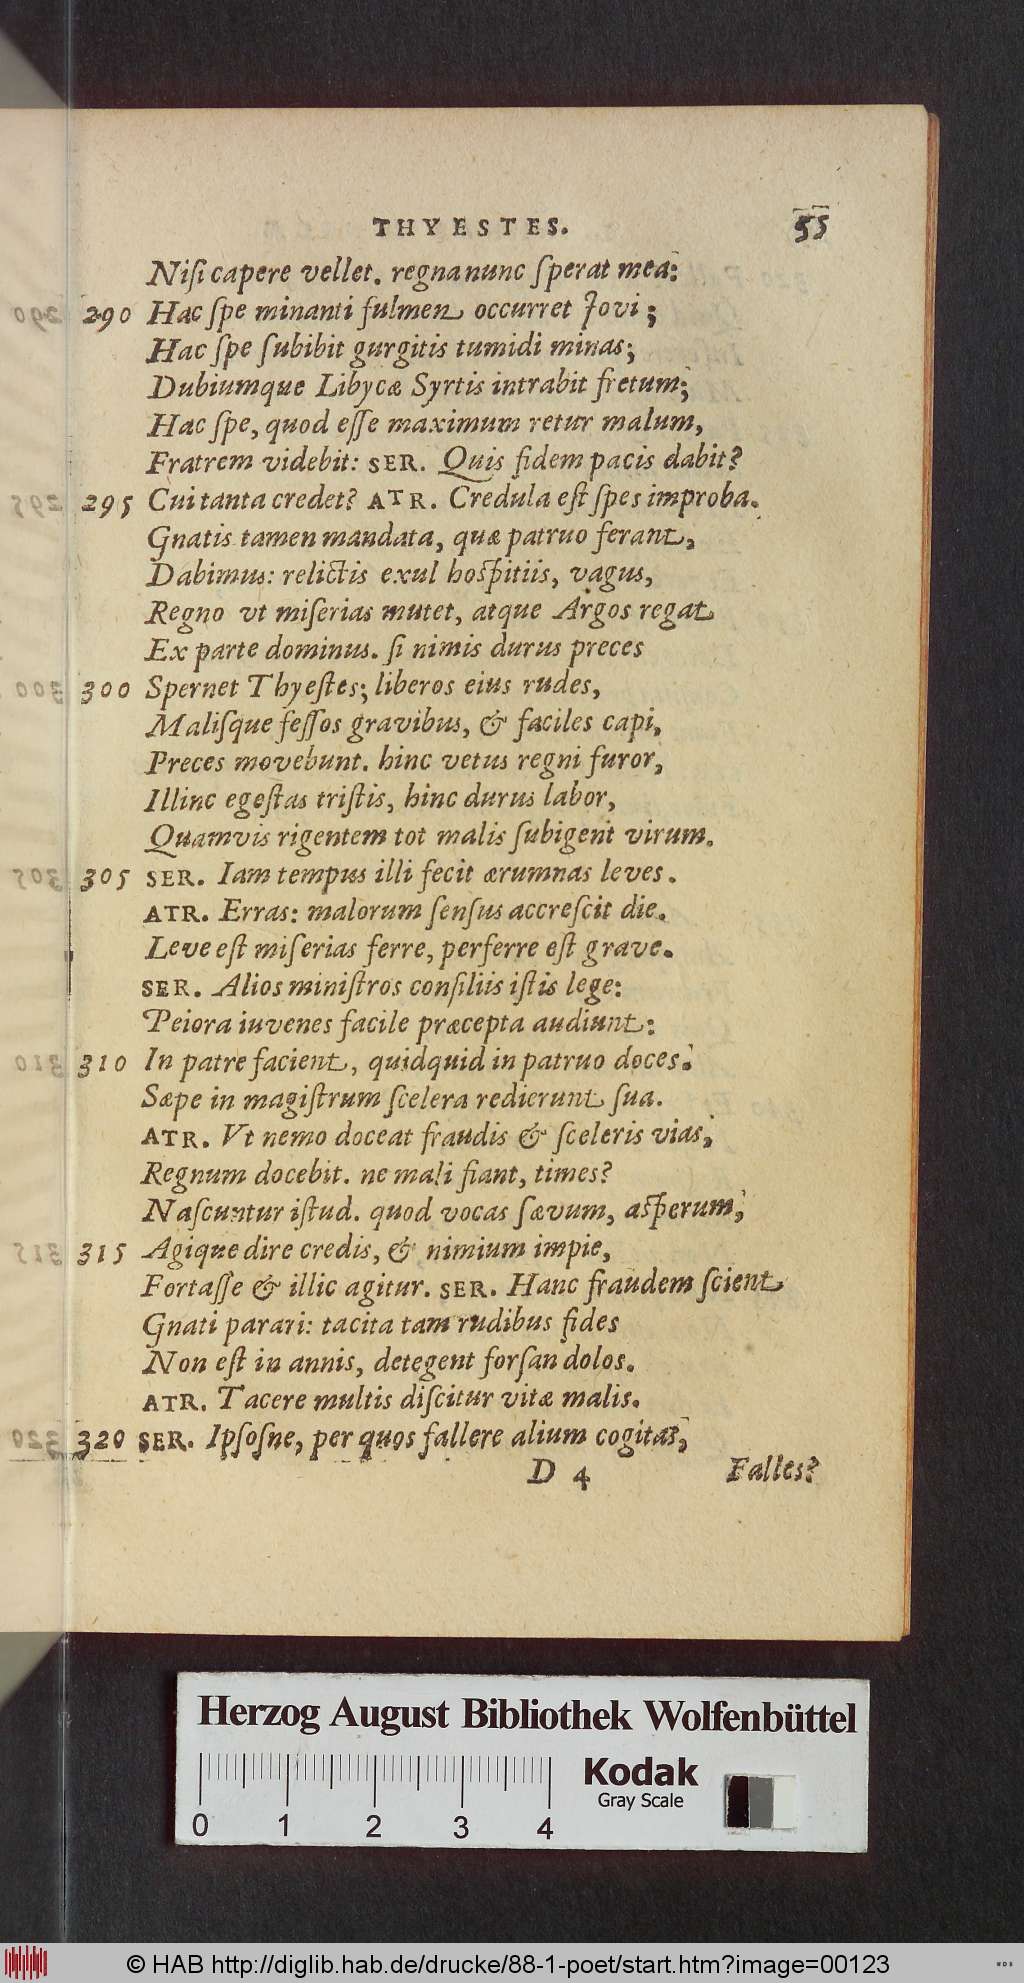 THYESTES. 55
Niſi capere vellet. regna nunc ſperat mea:
290 Hac ſpe minanti fulmen occurret Jovi;
Hac ſpe ſubibit gurgitis tumidi minas;
Dubiumque Libycæ Syrtis intrabit fretum;
Hac ſpe, quod eſſe maximum retur malum,
Fratrem videbit: SER. Quis fidem pacis dabit?
295 Cui tanta credet? ATR. Credula eſt ſpes improba.
Gnatis tamen mandata, quæ patruo ferant,
Dabimus: relictis exul hoſpitiis, vagus,
Regno vt miſerias mutet, atque Argos regat
Ex parte dominus. ſi nimis durus preces
300 Spernet Thyeſtes; liberos eius rudes,
Maliſque feſſos gravibus, & faciles capi,
Preces movebunt. hinc vetus regni furor,
Illinc egeſtas triſtis, hinc durus labor,
Quamvis rigentem tot malis ſubigent virum.
305 SER. Iam tempus illi fecit ærumnas leves.
ATR. Erras: malorum ſenſus accreſcit die.
Leve eſt miſerias ferre, perferre eſt grave.
SER. Alios miniſtros conſiliis iſtis lege:
Peiora iuvenes facile præcepta audiunt:
310 In patre facient, quidquid in patruo doces.
Sæpe in magiſtrum ſcelera redierunt ſua.
ATR. Vt nemo doceat fraudis & ſceleris vias,
Regnum docebit. ne mali fiant, times?
Naſcuntur iſtud. quod vocas ſævum, aſperum,
315 Agique dire credis, & nimium impie,
Fortaſſe & illic agitur. SER. Hanc fraudem ſcient
Gnati parari: tacita tam rudibus fides
Non eſt in annis, detegent forſan dolos.
ATR. Tacere multis diſcitur vitæ malis.
320 SER. Ipſoſne, per quos fallere alium cogitas,
D 4 Falles?
Herzog August Bibliothek Wolfenbüttel
Kodak
Gray Scale
0 1 2 3 4
© HAB http://diglib.hab.de/drucke/88-1-poet/start.htm?image=00123